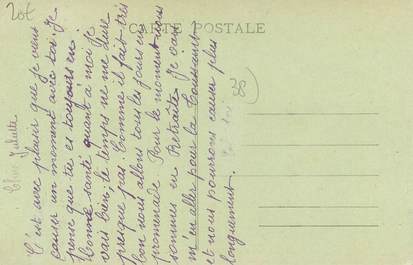 20f
CARTE POSTALE
38)
Chère Juliette
C'est une plaisir que je viens
causer un moment avec toi. Je
pense que tu es toujours en
bonne santé quant à moi je
vais bien, le temps ne me dure
presque pas. Comme il fait très
bon nous allons tous les jours en
promenade Pour le moment nous
sommes en Retraite Je vais
m'en aller pour la Toussaint
et nous pourrons causer plus
longuement.